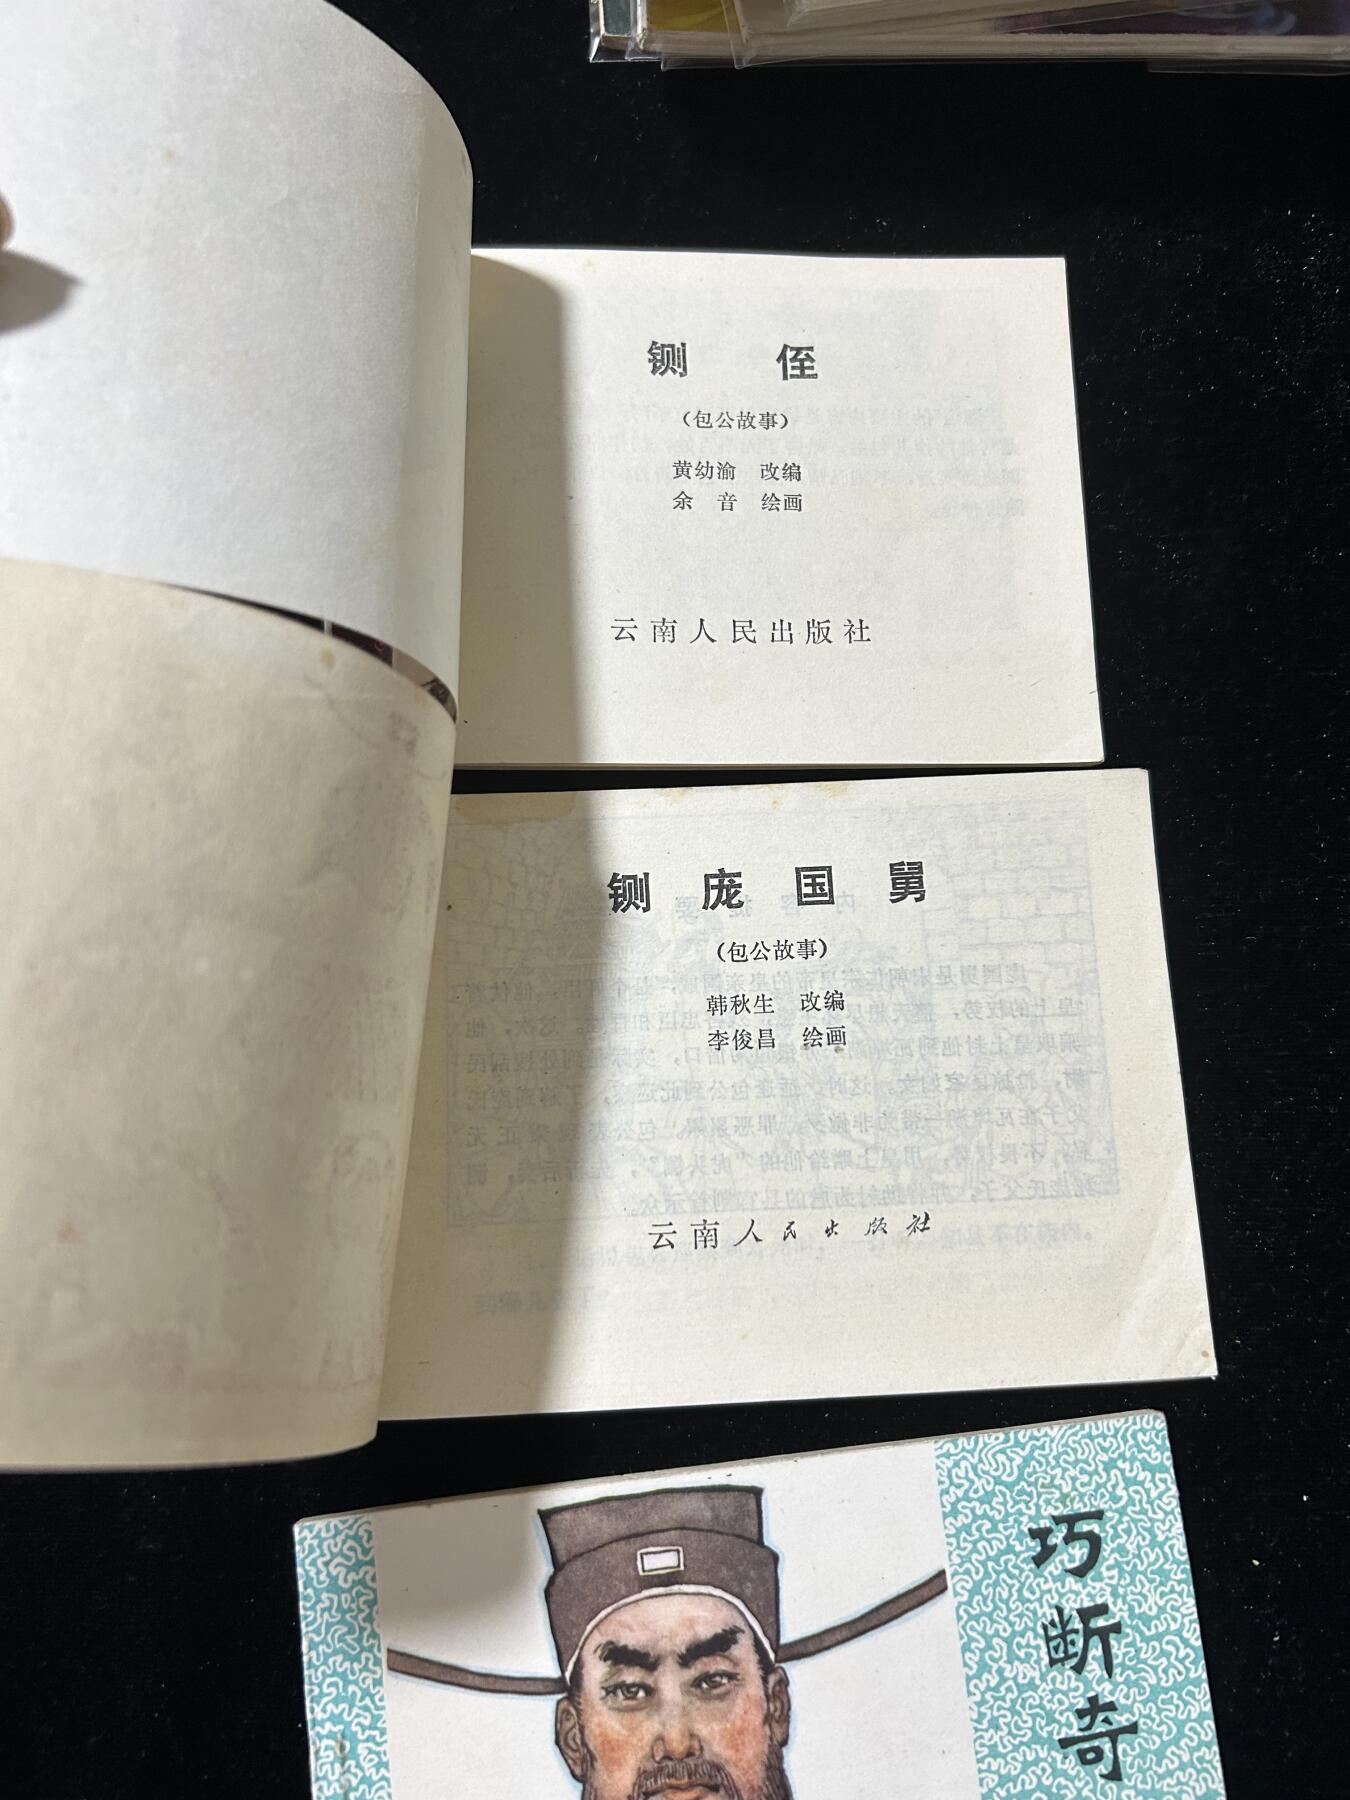 铡 侄
（包公故事）
黄幼渝 改编
余 音 绘画
云南人民出版社
铡 庞 国 舅
（包公故事）
韩秋生 改编
李俊昌 绘画
云南人民出版社
巧断奇